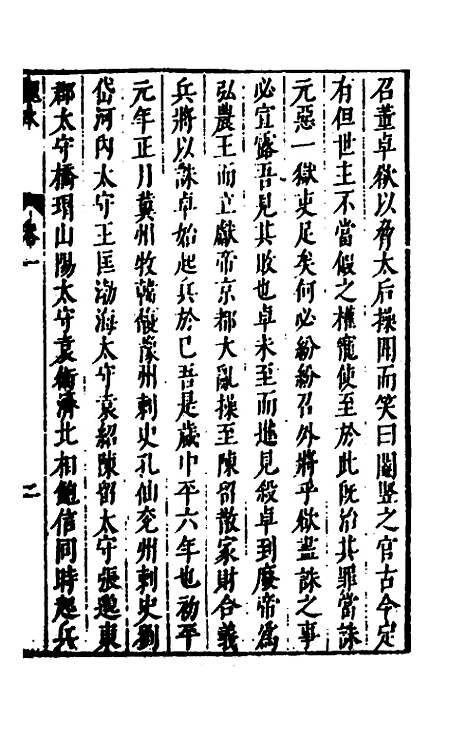 召董卓欲以脅太后操聞而笑曰閹豎之官古今定
有但世主不當假之權寵使至於此既治其罪當誅
元惡一獄吏足矣何必紛紛召外將乎欲盡誅之事
必宣露吾見其敗也卓未至而進見殺卓到廢帝爲
弘農王而立獻帝京都大亂操至陳留散家財合義
兵將以誅卓始起兵於已吾是歲中平六年也初平
元年正月冀州牧韓馥豫州刺史孔伷兖州刺史劉
岱河內太守王匡渤海太守袁紹陳留太守張邈東
郡太守橋瑁山陽太守袁術濟北相鮑信同時起兵
卷一
二